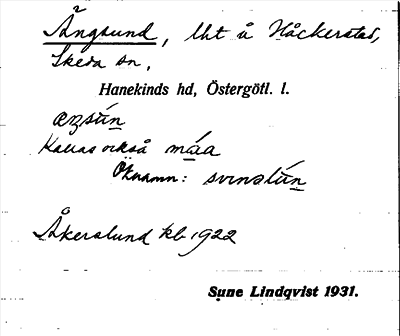 Ängsund, lht å Håckerstad,
Skeda sn,
Hanekinds hd, Östergötl. l.
æŋsún
Kallas också máa
Öknamn: svinstún
Åkerslund kb 1922
Sune Lindqvist 1931.